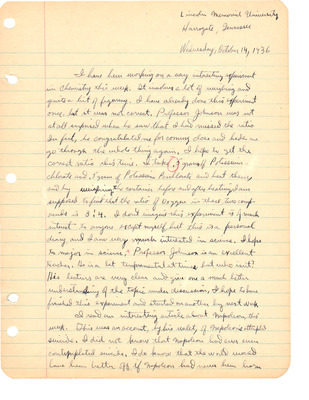 Lincoln Memorial University
Harrogate, Tennessee
Wednesday, October 14, 1936
I have been working on a very interesting experiment
in Chemistry this week. It involves a lot of weighing and
quite a bit of figuring. I have already done this experiment
once, but it was not correct. Professor Johnson was not
at all surprised when he saw that I had missed the ratio
In fact, he congratulated me for coming close and
go through the whole thing again. I hope to get the
correct ratio this time. I take grams of Potassium
chlorate and 1 gram of Potassium Perchlorate and heat them,
and by weighing the container before and after heating I am
supposed to find that the ratio of oxygen in these two com-
pounds is 3:4. I don't imagine this experiment is of much
interest to anyone except myself, but this is a personal
diary, and I am very much interested in science. I hope
to major in science. Professor Johnson is an excellent
teacher. He is a bit temperamental at times but who isn't?
His lectures are very clear and give one a much better
understanding of the topic under discussion. I hope to have
finished this experiment and started on another by next week.
I read an interesting article about Napoleon this
week. This was an account, by his valet, of Napoleon's attempted
suicide. I did not know that Napoleon had ever even
contemplated suicide. I do know that the world would
have been better off if Napoleon had never been born